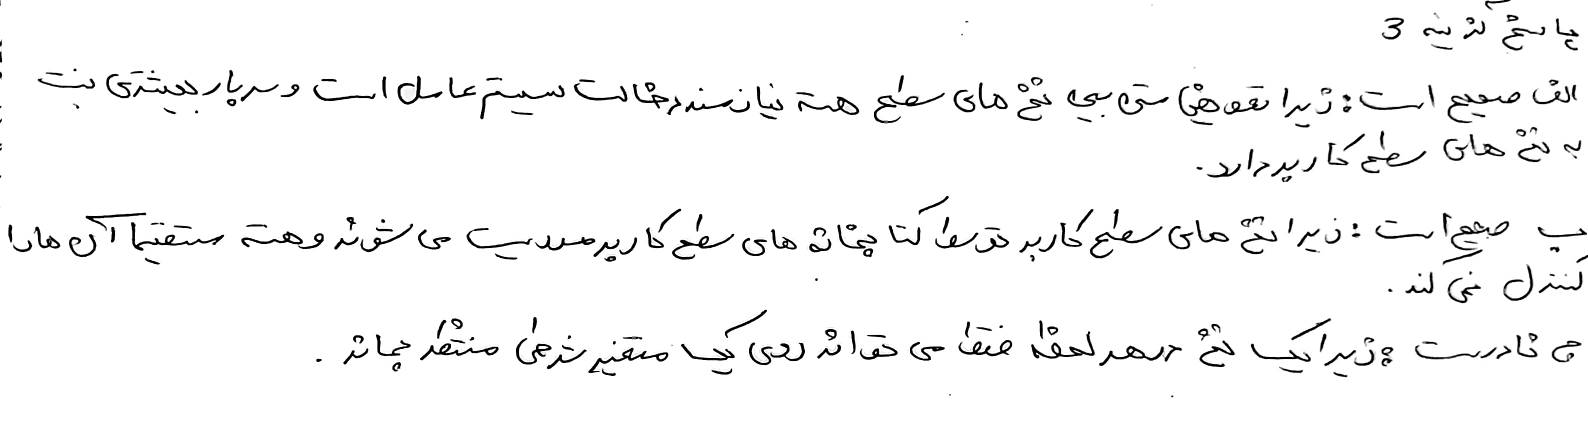 پاسخ گزینه 3
الف صحیح است: زیرا تعویض متن بین نخ های سطح هسته نیازمند دخالت سیستم عامل است و سربار بیشتری نسبت
به نخ های سطح کاربر دارد.
ب صحیح است: زیرا نخ های سطح کاربر توسط کتابخانه های سطح کاربر مدیریت می شوند و هسته مستقیما آن ها را
کنترل نمی کند.
ج نادرست: زیرا یک نخ در هر لحظه فقط می تواند روی یک متغیر شرطی منتظر بماند.